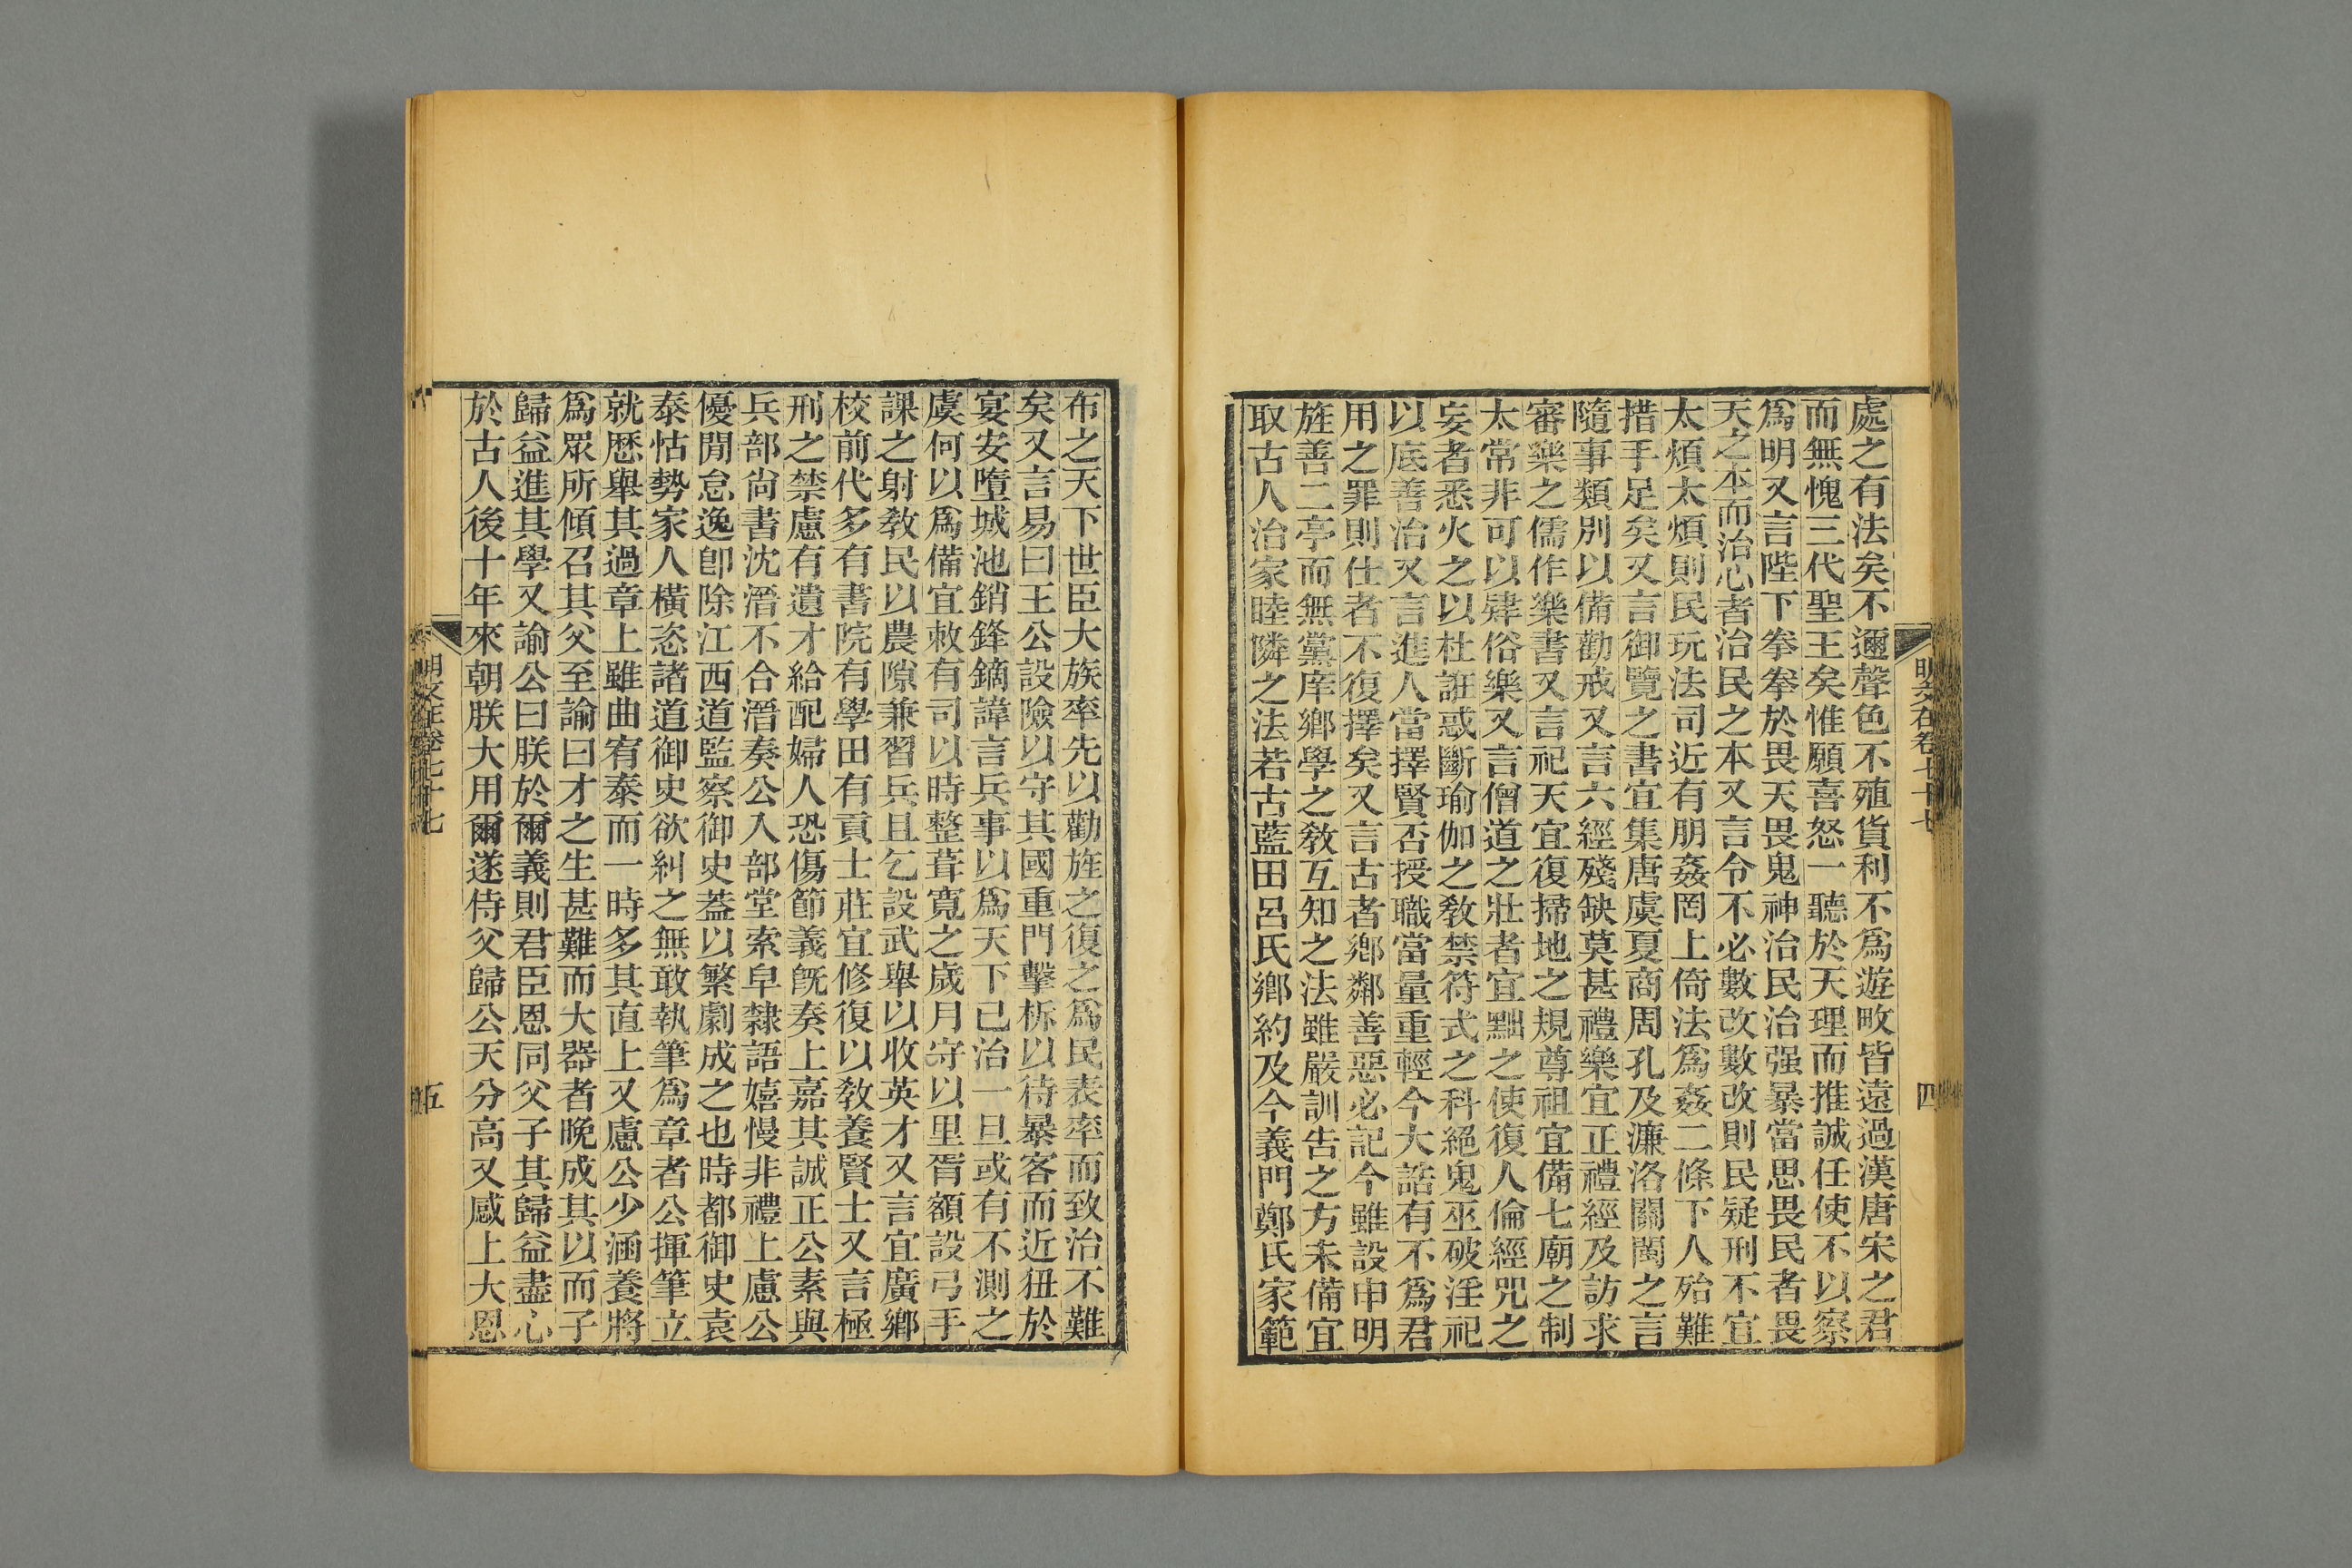 明文在卷七十七
四
處之有法矣不邇聲色不殖貨利不爲遊畋皆遠過漢唐宋之君
而無愧三代聖王矣惟願喜怒一聽於天理而推誠任使不以察
爲明又言陛下拳拳於畏天畏鬼神治民治强暴當思畏民者畏
天之本而治心者治民之本又言令不必數改數改則民疑刑不宜
太煩太煩則民玩法司近有朋姦罔上倚法爲姦二條下人殆難
措手足矣又言御覽之書宜集唐虞夏商周孔及濂洛關閩之言
隨事類別以備勸戒又言六經殘缺莫甚禮樂宜正禮經及訪求
審樂之儒作樂書又言祀天宜復掃地之規尊祖宜備七廟之制
太常非可以肄俗樂又言僧道之壯者宜黜之使復人倫經咒之
妄者悉火之以杜誑惑斷瑜伽之敎禁符式之科絕鬼巫破淫祀
以底善治又言進人當擇賢否授職當量重輕今大誥有不爲君
用之罪則仕者不復擇矣又言古者鄕鄰善惡必記今雖設申明
旌善二亭而無黨庠鄕學之敎互知之法雖嚴訓告之方未備宜
取古人治家睦隣之法若古藍田呂氏鄕約及今義門鄭氏家範
布之天下世臣大族率先以勸旌之復之爲民表率而致治不難
矣又言易曰王公設險以守其國重門擊柝以待暴客而近狃於
宴安墮城池銷鋒鏑諱言兵事以爲天下已治一旦或有不測之
虞何以爲備宜敕有司以時整葺寬之歲月守以里胥額設弓手
課之射敎民以農隙兼習兵且乞設武舉以收英才又言宜廣鄕
校前代多有書院有學田有貢士莊宜修復以敎養賢士又言極
刑之禁慮有遺才給配婦人恐傷節義旣奏上嘉其誠正公素與
兵部尙書沈溍不合溍奏公入部堂索皁隸語嬉慢非禮上慮公
優閒怠逸卽除江西道監察御史蓋以繁劇成之也時都御史袁
泰怙勢家人橫恣諸道御史欲糾之無敢執筆爲章者公揮筆立
就歷舉其過章上雖曲宥泰而一時多其直上又慮公少涵養將
爲眾所傾召其父至諭曰才之生甚難而大器者晚成其以而子
歸益進其學又諭公曰朕於爾義則君臣恩同父子其歸益盡心
於古人後十年來朝朕大用爾遂侍父歸公天分高又感上大恩
明文在卷七十七
五